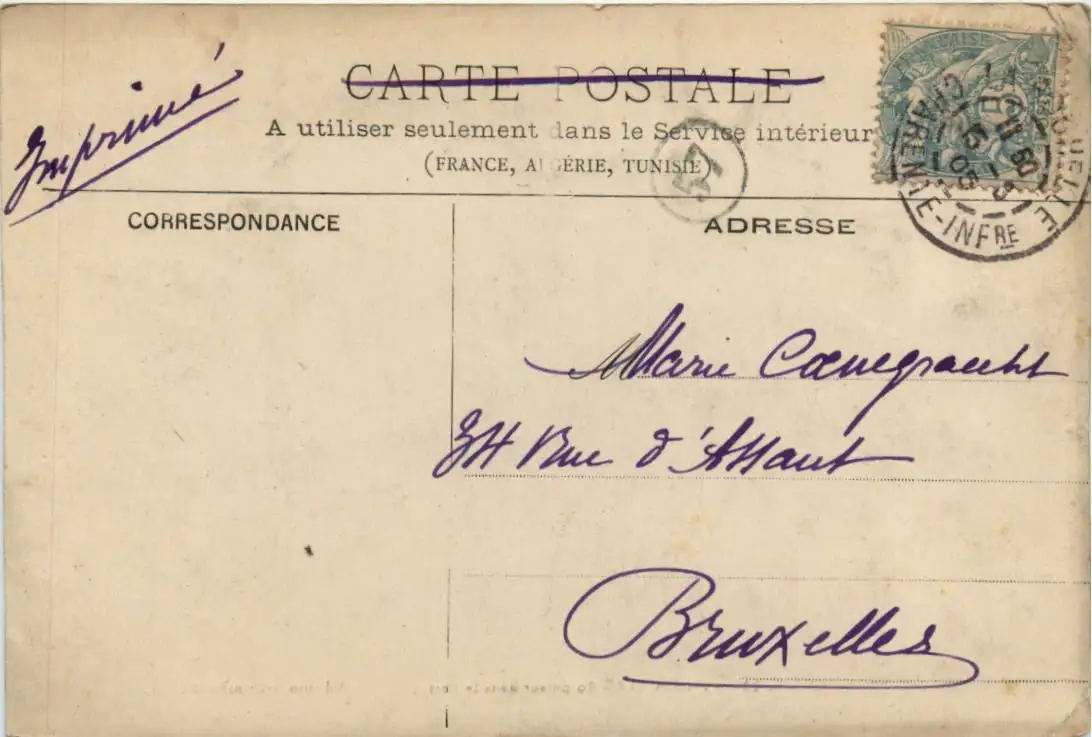 Imprimé
CARTE POSTALE
A utiliser seulement dans le Service intérieur
(FRANCE, ALGÉRIE, TUNISIE)
57
CORRESPONDANCE
ADRESSE
CHARENTE-INFRE
Marie Coenegracht
34 Rue d'Assaut
Bruxelles